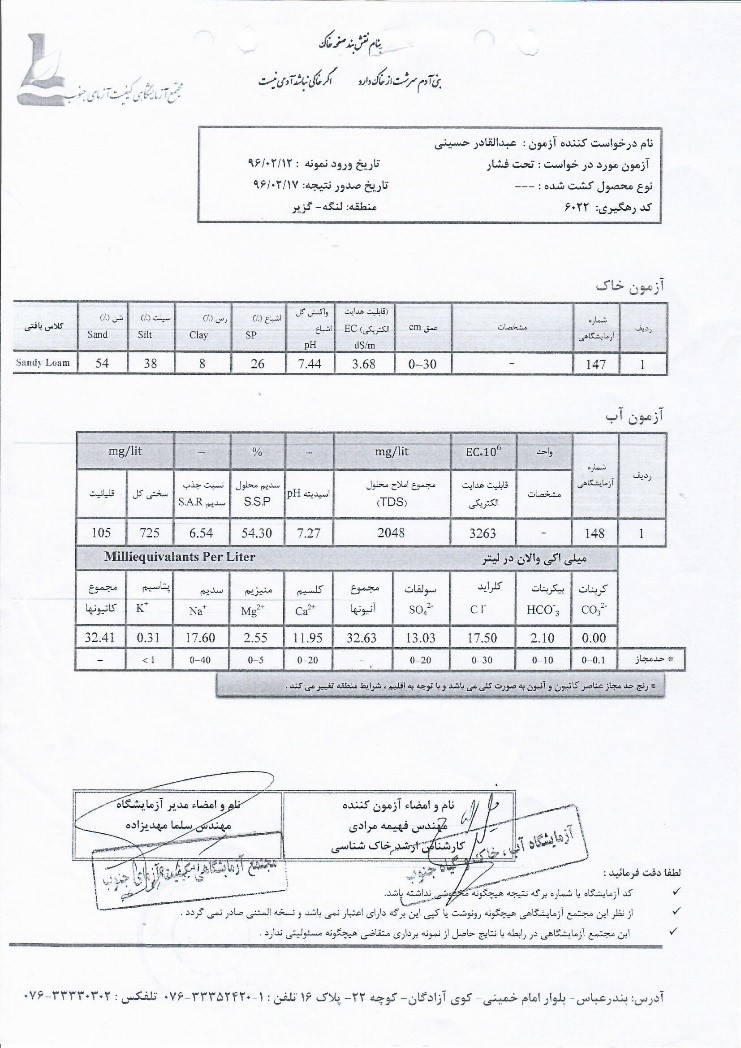 بنام نقش بند صفحه خاک
بنی آدم سرشت از خاک دارد اگر خاکی نباشد آدمی نیست
مجتمع آزمایشگاهی کیفیت آزمای جنوب
نام درخواست کننده آزمون : عبدالقادر حسینی
آزمون مورد در خواست : تحت فشار تاریخ ورود نمونه : ۹۶/۰۲/۱۲
نوع محصول کشت شده : --- تاریخ صدور نتیجه: ۹۶/۰۲/۱۷
کد رهگیری: ۶۰۲۲ منطقه: لنگه- گزیر
آزمون خاک
ردیف شماره آزمایشگاهی مشخصات عمق cm (قابلیت هدایت الکتریکی) EC dS/m واکنش گل اشباع pH اشباع (%) SP رس (%) Clay سیلت (%) Silt شن (%) Sand کلاس بافتی
1 147 - 0-30 3.68 7.44 26 8 38 54 Sandy Loam
آزمون آب
ردیف شماره آزمایشگاهی واحد EC.10⁶ mg/lit - % - mg/lit
مشخصات قابلیت هدایت الکتریکی مجموع املاح محلول (TDS) اسیدیته pH سدیم محلول S.S.P نسبت جذب سدیم S.A.R سختی کل قلیائیت
1 148 - 3263 2048 7.27 54.30 6.54 725 105
میلی اکی والان در لیتر Milliequivalants Per Liter
کربنات CO₃²⁻ بیکربنات HCO⁻₃ کلراید Cl⁻ سولفات SO₄²⁻ مجموع آنیونها کلسیم Ca²⁺ منیزیم Mg²⁺ سدیم Na⁺ پتاسیم K⁺ مجموع کاتیونها
0.00 2.10 17.50 13.03 32.63 11.95 2.55 17.60 0.31 32.41
* حدمجاز 0-0.1 0-10 0-30 0-20 - 0-20 0-5 0-40 <1 -
* رنج حد مجاز عناصر کاتیون و آنیون به صورت کلی می باشد و با توجه به اقلیم ، شرایط منطقه تغییر می کند .
نام و امضاء آزمون کننده نام و امضاء مدیر آزمایشگاه
مهندس فهیمه مرادی مهندس سلما مهدیزاده
کارشناس ارشد خاک شناسی
آزمایشگاه آب ، خاک و گیاه جنوب
مجتمع آزمایشگاهی کیفیت آزمای جنوب
لطفا دقت فرمائید :
✓ کد آزمایشگاه یا شماره برگه نتیجه هیچگونه مخدوشی نداشته باشد.
✓ از نظر این مجتمع آزمایشگاهی هیچگونه رونوشت یا کپی این برگه دارای اعتبار نمی باشد و نسخه المثنی صادر نمی گردد .
✓ این مجتمع آزمایشگاهی در رابطه با نتایج حاصل از نمونه برداری متقاضی هیچگونه مسئولیتی ندارد .
آدرس: بندرعباس- بلوار امام خمینی- کوی آزادگان- کوچه ۲۲- پلاک ۱۶ تلفن : ۱-۰۷۶-۳۳۳۵۲۴۲۰ تلفکس : ۰۷۶-۳۳۳۳۰۳۰۲